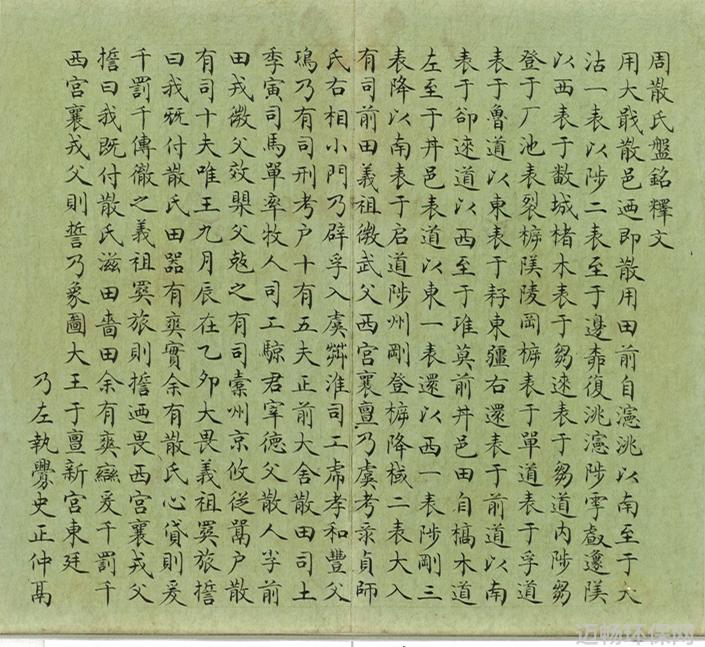 周散氏盤銘釋文
用大散邑迺即散用田前自瀗洮以南至于大
沽一表以陟二表至于邊復洮瀗陟雩𠭯邍
以西表于城楮木表于芻逨表于芻道内陟芻
登于厂池表裂陵岡表于單道表于孚道
表于魯道以東表于東疆右還表于前道以南
表于逨道以西至于堆莫前丼邑田自木道
左至于丼邑表道以東一表還以西一表陟剛三
表降以南表于启道陟州剛登降棫二表大入
有司前田義祖微武父西宮襄亶乃虞考貞師
氏右相小門乃辟孚入虞淮司工虎孝和豐父
乃有司刑考户十有五夫正前大舍散田司土
季寅司馬單率牧人司工君宰德父散人前
田戎微父效父之有司橐州京攸從鬲户散
有司十夫唯王九月辰在乙夘大畏義祖旅
曰我既付散氏田器有爽實余有散氏心貸則爰
千罰千傳徹之義祖旅則迺畏西宮襄戎父
誓曰我既付散氏滋田嗇田余有爽爰千罰千
西宮襄戎父則誓乃象圖大王于亶新宮東廷
乃左執史正仲
迈畅环保网